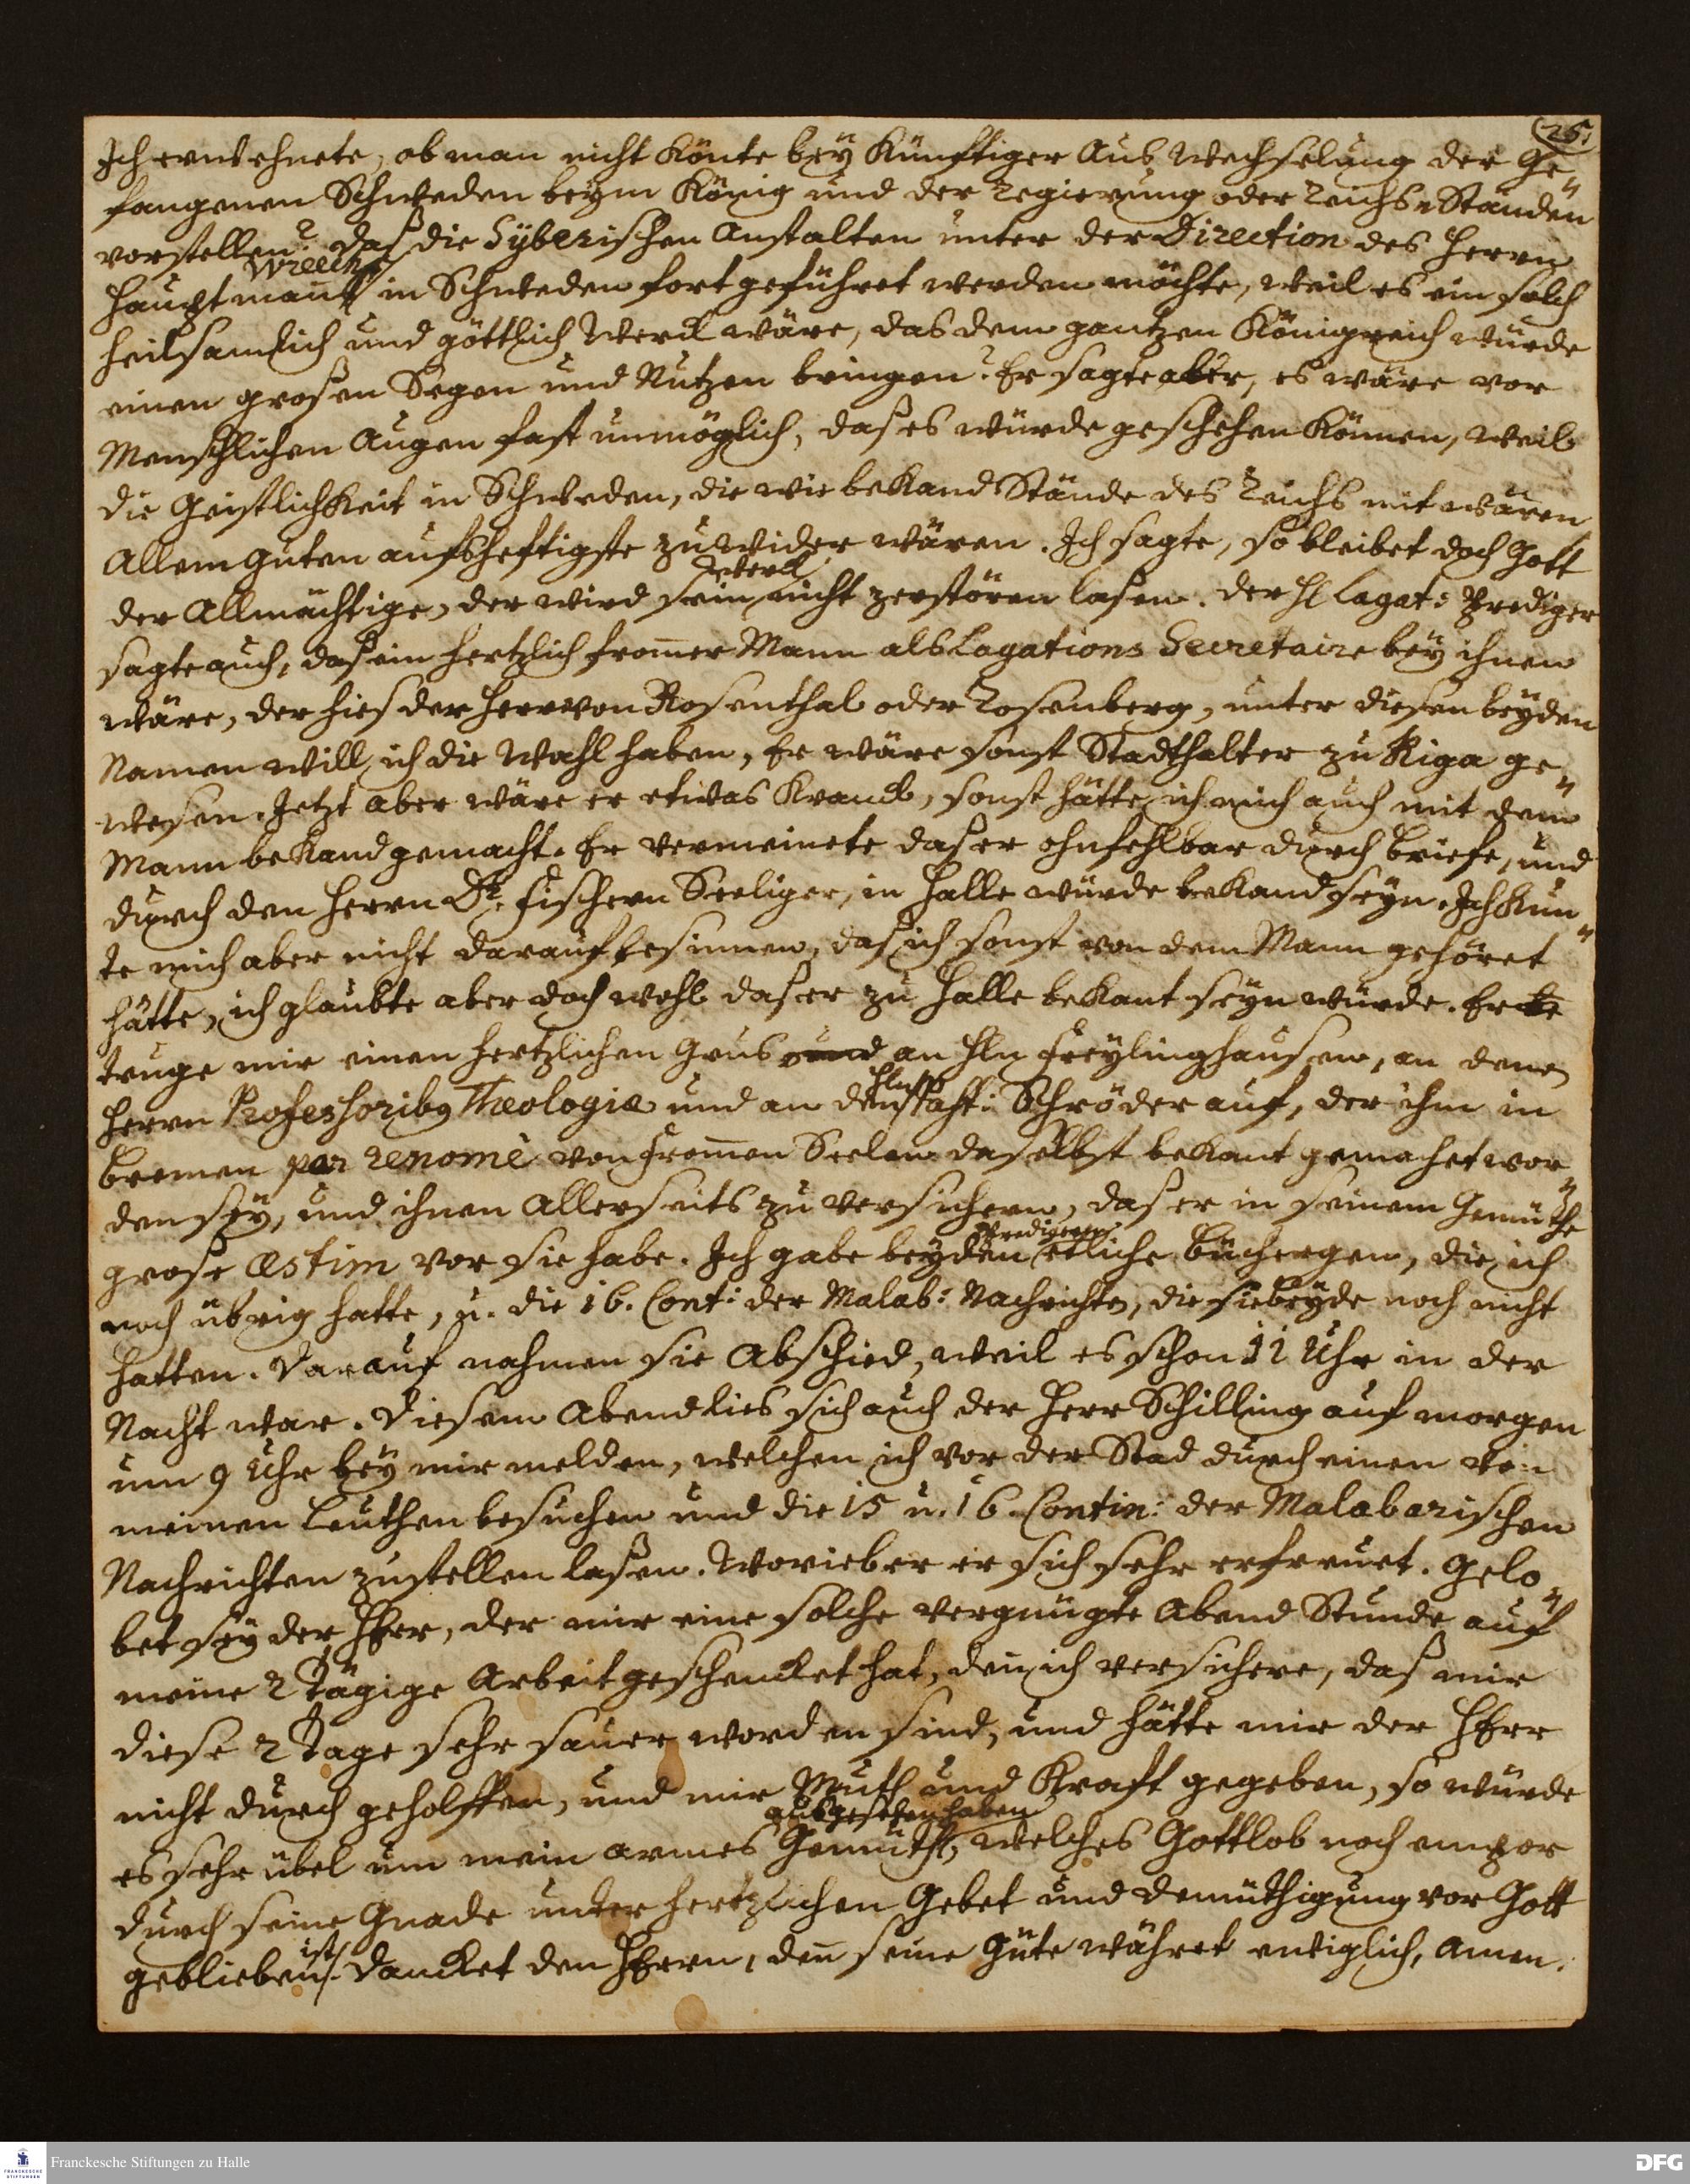 25.
Ich erwehnete, ob man nicht könte bey künftiger Aus Wechselung der Ge-
fangenen Schweden beym König und der Regierung oder Reichs-Ständen
vorstellen? daß die Syberischen Anstalten unter der Direction des Herrn
Hauptmanns Wreech in Schweden fortgeführet werden möchte, weil es ein solch
heilsamlich und göttlich Werck wäre, das dem gantzen Königreich würde
einen großen Segen und Nutzen bringen? Er sagte aber, es wäre vor
Menschlichen Augen fast unmöglich, daß es würde geschehen können, weil
die Geistlichkeit in Schweden, die wie bekand Stände des Reichs mit wären
Allem guten aufs hefftigste zuwider wären. Ich sagte, so bleibet doch Gott
der Allmächtige, der wird sein Werck nicht zerstören laßen. der H. Lagat: Prediger
sagte auch, daß ein hertzlich from̄er Mann als Lagations Secretaire bey ihnen
wäre, der hies der Herr von Rosenthal oder Rosenberg, unter diesen beyden
Namen will ich die Wahl haben, Er wäre sonst Stadthalter zu Riga ge-
wesen. Jetzt aber wäre er etwas kranck, sonst hätte ich mich auch mit dem
Mann bekand gemacht. Er vermeinete daß er ohnfehlbar durch Briefe, und
durch den Herrn Dr. Fischern Seeliger, in Halle würde bekand seyn. Ich kun-
te mich aber nicht darauf besinnen, daß ich sonst von dem Mann gehöret
hätte, ich glaubte aber doch wohl daß er zu Halle bekant seyn würde. Er be
truge mir einen hertzlichen Grus und an Hln Freylinghausen, an denen
Herrn Professoribq Theologiæ und an den Hln Past: Schröder auf, der ihm in
Bremen par renomè von from̄en Seelen daselbst bekant gemachet wor-
den sey, und ihnen Allerseits zu versichern, daß er in seinem Gemüthe
große æstim vor sie habe. Ich gabe beyden Predigern etliche Büchergen, die ich
noch übrig hatte, u. die 16. Cont: der Malab: Nachrichten, die sie beyde noch nicht
hatten. Darauf nahmen sie Abschied, weil es schon 11 Uhr in der
Nacht war. Diesem Abend lies sich auch der Herr Schilling auf morgen
um 9 Uhr bey mir melden, welchen ich vor der Stad durch einen von
meinen Leuthen besuchen und die 15 u. 16. Contin: der Malabarischen
Nachrichten zustellen laßen. Worieber er sich sehr erfreuet. Gelo-
bet sey der HErr, der mir eine solche vergnügte Abend Stunde auf
meine 2 Tägige Arbeit geschencket hat, den̄ ich versichere, daß mir
diese 2 Tage sehr sauer worden sind, und hätte mir der HErr
nicht durch geholffen, und mir Muth und Krafft gegeben, so würde
es sehr übel um mein armes Gemüth ausgesehen haben, welches Gottlob noch empor
durch seine Gnade unter hertzlichen Gebet und demüthigung vor Gott
geblieben ist. Dancket dem HErrn, den̄ seine Güte währet ewiglich, Amen.
Franckesche Stiftungen zu Halle
FRANCKESCHE STIFTUNGEN
DFG